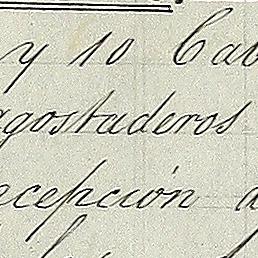 y 10 Cab
agostaderos
ecepción d